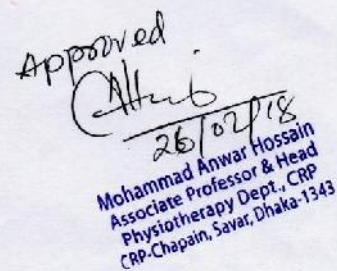 Approved
26/02/18
Mohammad Anwar Hossain
Associate Professor & Head
Physiotherapy Dept., CRP
CRP-Chapain, Savar, Dhaka-1343